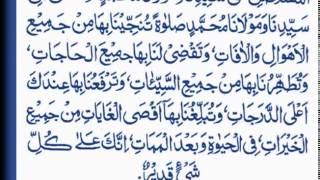 سَيِّدِنَا وَمَوْلَانَا مُحَمَّدٍ صَلٰوةً تُنَجِّيْنَا بِهَا مِنْ جَمِيْعِ
الْاَهْوَالِ وَالْاٰفَاتِ، وَتَقْضِىْ لَنَا بِهَا جَمِيْعَ الْحَاجَاتِ،
وَتُطَهِّرُنَا بِهَا مِنْ جَمِيْعِ السَّيِّئَاتِ، وَتَرْفَعُنَا بِهَا عِنْدَكَ
اَعْلَى الدَّرَجَاتِ، وَتُبَلِّغُنَا بِهَا اَقْصَى الْغَايَاتِ مِنْ جَمِيْعِ
الْخَيْرَاتِ فِى الْحَيٰوةِ وَبَعْدَ الْمَمَاتِ، اِنَّكَ عَلٰى كُلِّ
شَىْءٍ قَدِيْرٌ